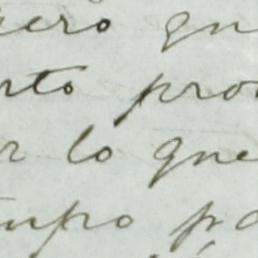 ero qu
rto pro
r lo que
mpo pa